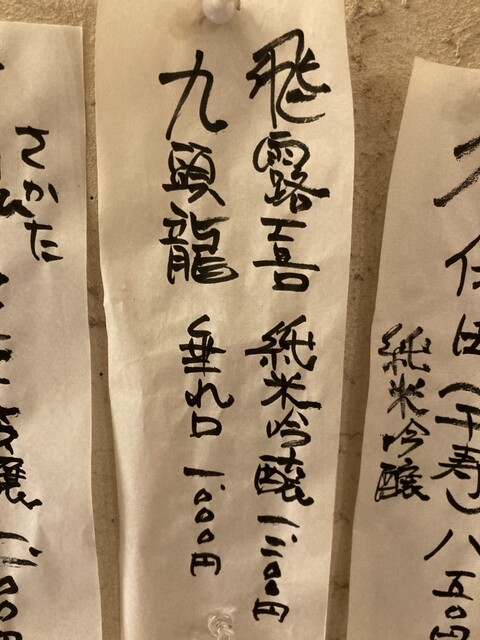 久保田(千寿)八五〇円
純米吟醸
飛露喜 純米吟醸
九頭龍 垂れ口 一、〇〇〇円
さかた